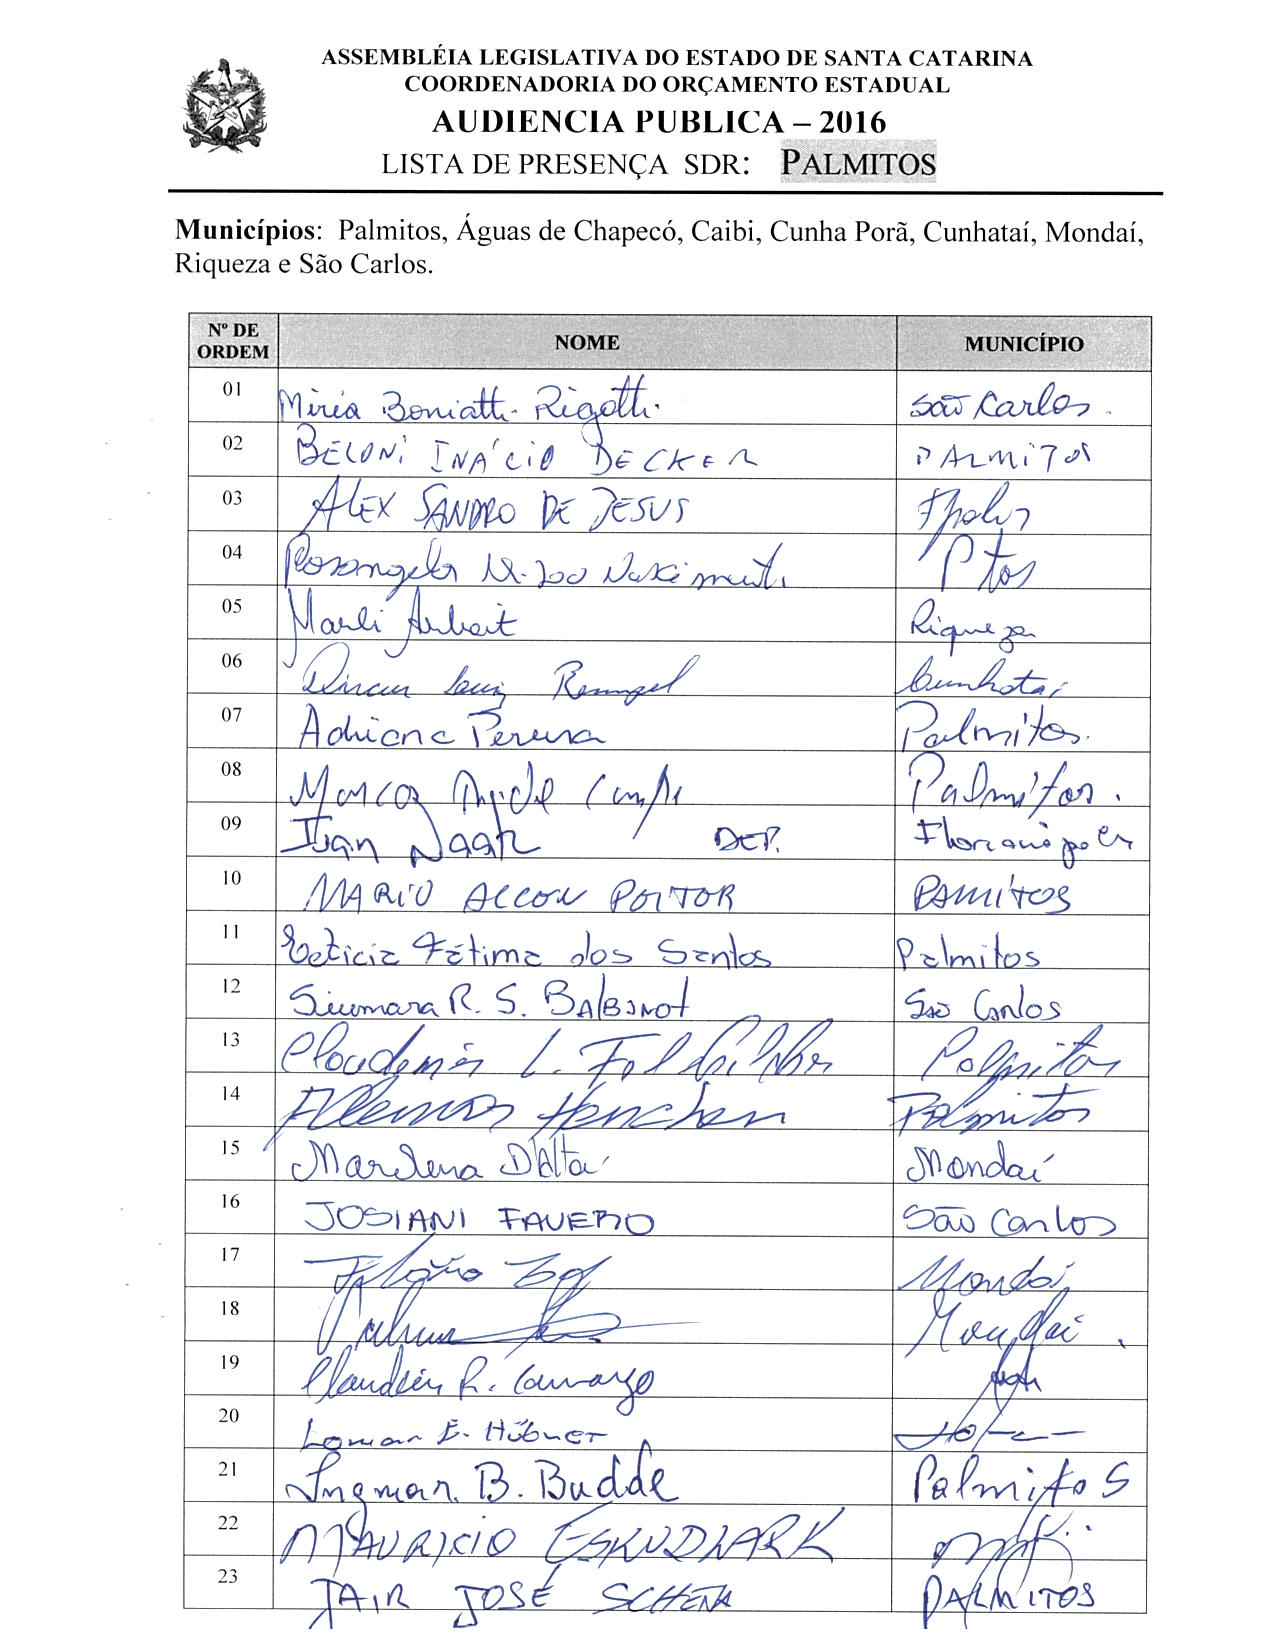 ASSEMBLÉIA LEGISLATIVA DO ESTADO DE SANTA CATARINA
COORDENADORIA DO ORÇAMENTO ESTADUAL
AUDIENCIA PUBLICA – 2016
LISTA DE PRESENÇA SDR: PALMITOS
Municípios: Palmitos, Águas de Chapecó, Caibi, Cunha Porã, Cunhataí, Mondaí,
Riqueza e São Carlos.
Nº DE ORDEM NOME MUNICÍPIO
01 Miria Boniatti Rigotti São Carlos.
02 BELONI INÁCIO DECKER PALMITOS
03 ALEX SANDRO DE JESUS
04 Rosangela Ptos
05 Marli Riqueza
06 Luiz Cunhataí
07 Adriana Pereira Palmitos.
08 Marcos Palmitos.
09 Ivan Naatz DEP. Florianópolis
10 MARIO PALMITOS
11 Leticia Fátima dos Santos Palmitos
12 Siumara R. S. BALBINOT São Carlos
13 L. Palmitos
14 Palmitos
15 Marilena Mondaí
16 JOSIANI FAVERO São Carlos
17 Mondaí
18 Mondaí.
19 R. Camargo
20 E. Hübner
21 Ingmar B. Budde Palmitos
22 MAURICIO ESKUDLARK
23 JAIR JOSÉ SCHENA PALMITOS